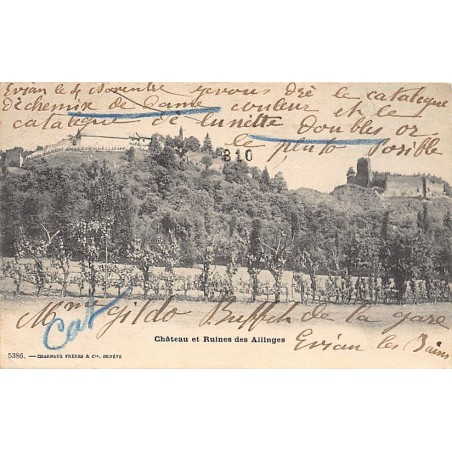 Evian le 4 Novembre je vous prie le catalogue
de chemix de Dame couleur et le
catalogue de lunette doubles or
le pluto Posible
310
Mme Gildo Buffet de la gare
Cat
Evian les Bains
Château et Ruines des Allinges
5386. — CHARNAUX FRÈRES & Cie, GENÈVE